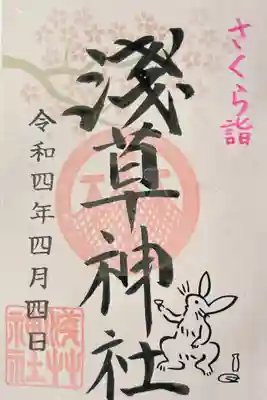 さくら詣
淺草神社
令和四年四月四日
淺草
神社